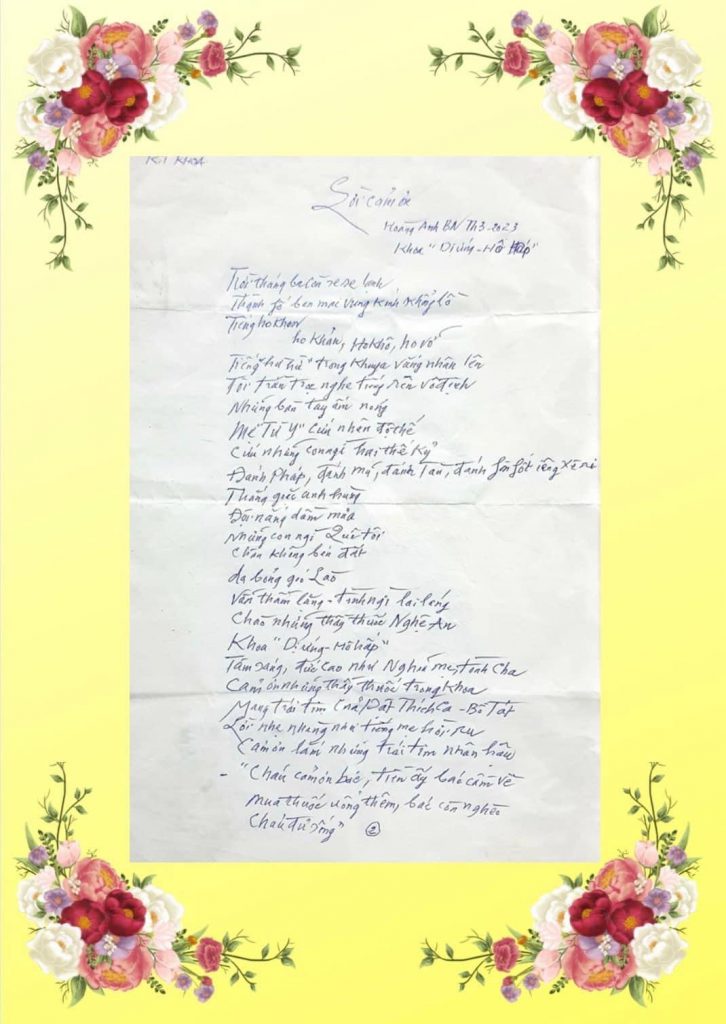 K/f KHOA
Lời cảm ơn
Hoàng Anh BN Th3-2023
Khoa "Dị ứng-Hô Hấp"
Trời tháng ba còn se se lạnh
Thành phố ban mai vững kính khổng lồ
Tiếng ho khan
ho khản, Ho khô, ho vỡ
Tiếng "hừ hừ" trong khuya vắng nhân lên
Tôi trằn trọc nghe tiếng rên vô định
Những bàn tay ấm nóng
Mẹ "Từ Y" cứu nhân độ thế
Cứu những con ngi hai thế kỷ
Đánh Pháp, đánh mỹ, đánh Tàu, đánh
Thắng giặc anh hùng
Đội nắng dầm mưa
Những con ngi Quê tôi
Chân không bén đất
dạ bỏng gió Lào
Vẫn thầm lặng - tình ngi lai láng
Chào những thầy thuốc Nghệ An
Khoa "Dị ứng-Hô hấp"
Tâm sáng, đức cao như Nghĩa mẹ, tình Cha
Cảm ơn những thầy thuốc trong Khoa
Mang trái tim của Phật Thích Ca - Bồ Tát
Lời nhẹ nhàng như tiếng mẹ hời ru
Cảm ơn lắm những trái tim nhân hậu
- "Cháu cảm ơn bác, tiền ấy bác cầm về
mua thuốc uống thêm, bác còn nghèo
Cháu đủ sống" 2